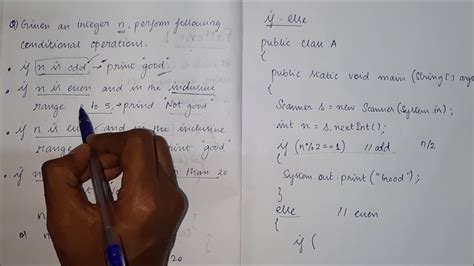 Q) Given an integer n, perform following
conditional operations.
• if n is odd → print "good"
• if n is even and in the inclusive
range to 5, → print "Not good"
• if n is even and in the inclusive
range print "good"
• if n Than 20
20
if - else
public class A
{
public static void main (String[]
{
Scanner s = new Scanner (System.in);
int n = s.nextInt();
if (n%2==1) // odd n/2
{
System.out.print("Good");
}
else // even
{
if (